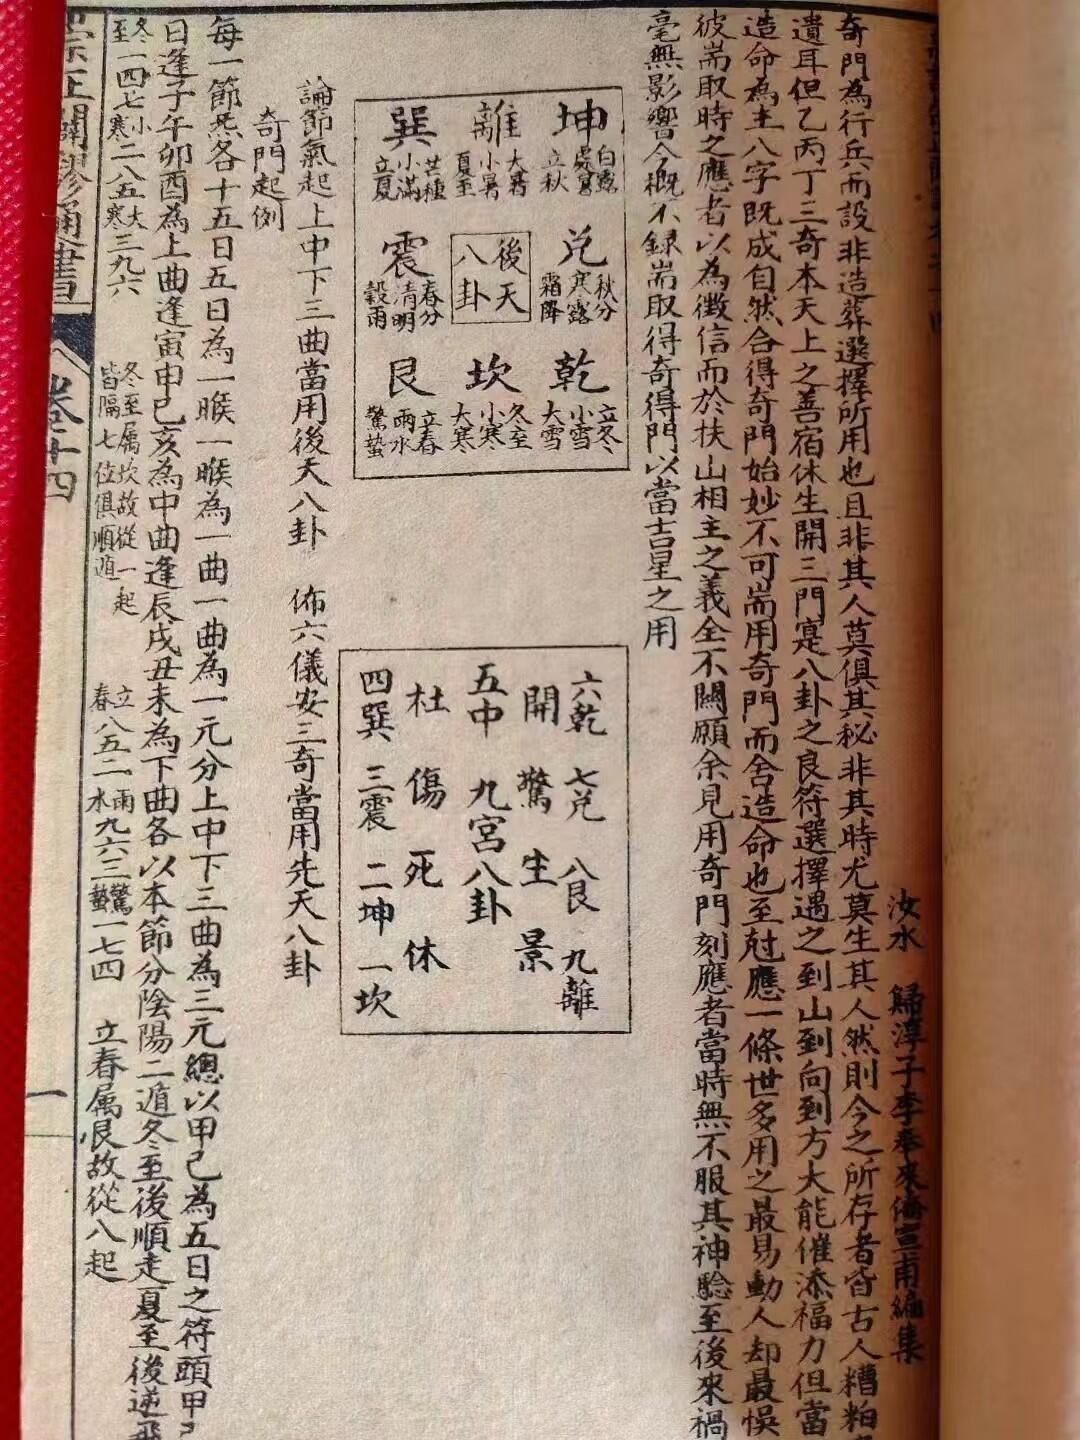 汝水 歸淳子李奉來儀宣甫編集
奇門為行兵而設非造葬選擇所用也且非其人莫俱其秘非其時尤莫生其人然則今之所存者皆古人糟粕
遺耳但乙丙丁三奇本天上之善宿休生開三門寔八卦之良符選擇遇之到山到向到方大能催添福力但當
造命為主八字既成自然合得奇門始妙不可耑用奇門而舍造命也至尅應一條世多用之最易動人却最悞
彼耑取時之應者以為徵信而於扶山相主之義全不關願余見用奇門刻應者當時無不服其神騐至後來禍
毫無影響今概不錄耑取得奇得門以當吉星之用
坤 白露 處暑 立秋
離 大暑 小暑 夏至
巽 芒種 小滿 立夏
兌 秋分 寒露 霜降
後天
八卦
震 春分 清明 穀雨
乾 立冬 小雪 大雪
坎 冬至 小寒 大寒
艮 立春 雨水 驚蟄
六乾 七兌 八艮 九離
開 驚 生 景
五中 九宮八卦
杜 傷 死 休
四巽 三震 二坤 一坎
論節氣起上中下三曲當用後天八卦 佈六儀安三奇當用先天八卦
奇門起例
每一節炁各十五日五日為一㬋一㬋為一曲一曲為一元分上中下三曲為三元總以甲己為五日之符頭甲己
日逢子午卯酉為上曲逢寅申巳亥為中曲逢辰戌丑未為下曲各以本節分陰陽二遁冬至後順走夏至後逆飛
冬至一四七小寒二八五大寒三九六 冬至属坎故從一起皆隔七位俱順遁 立春八五二雨水九六三驚蟄一七四 立春属艮故從八起
崇正闢謬通書 卷十四 一